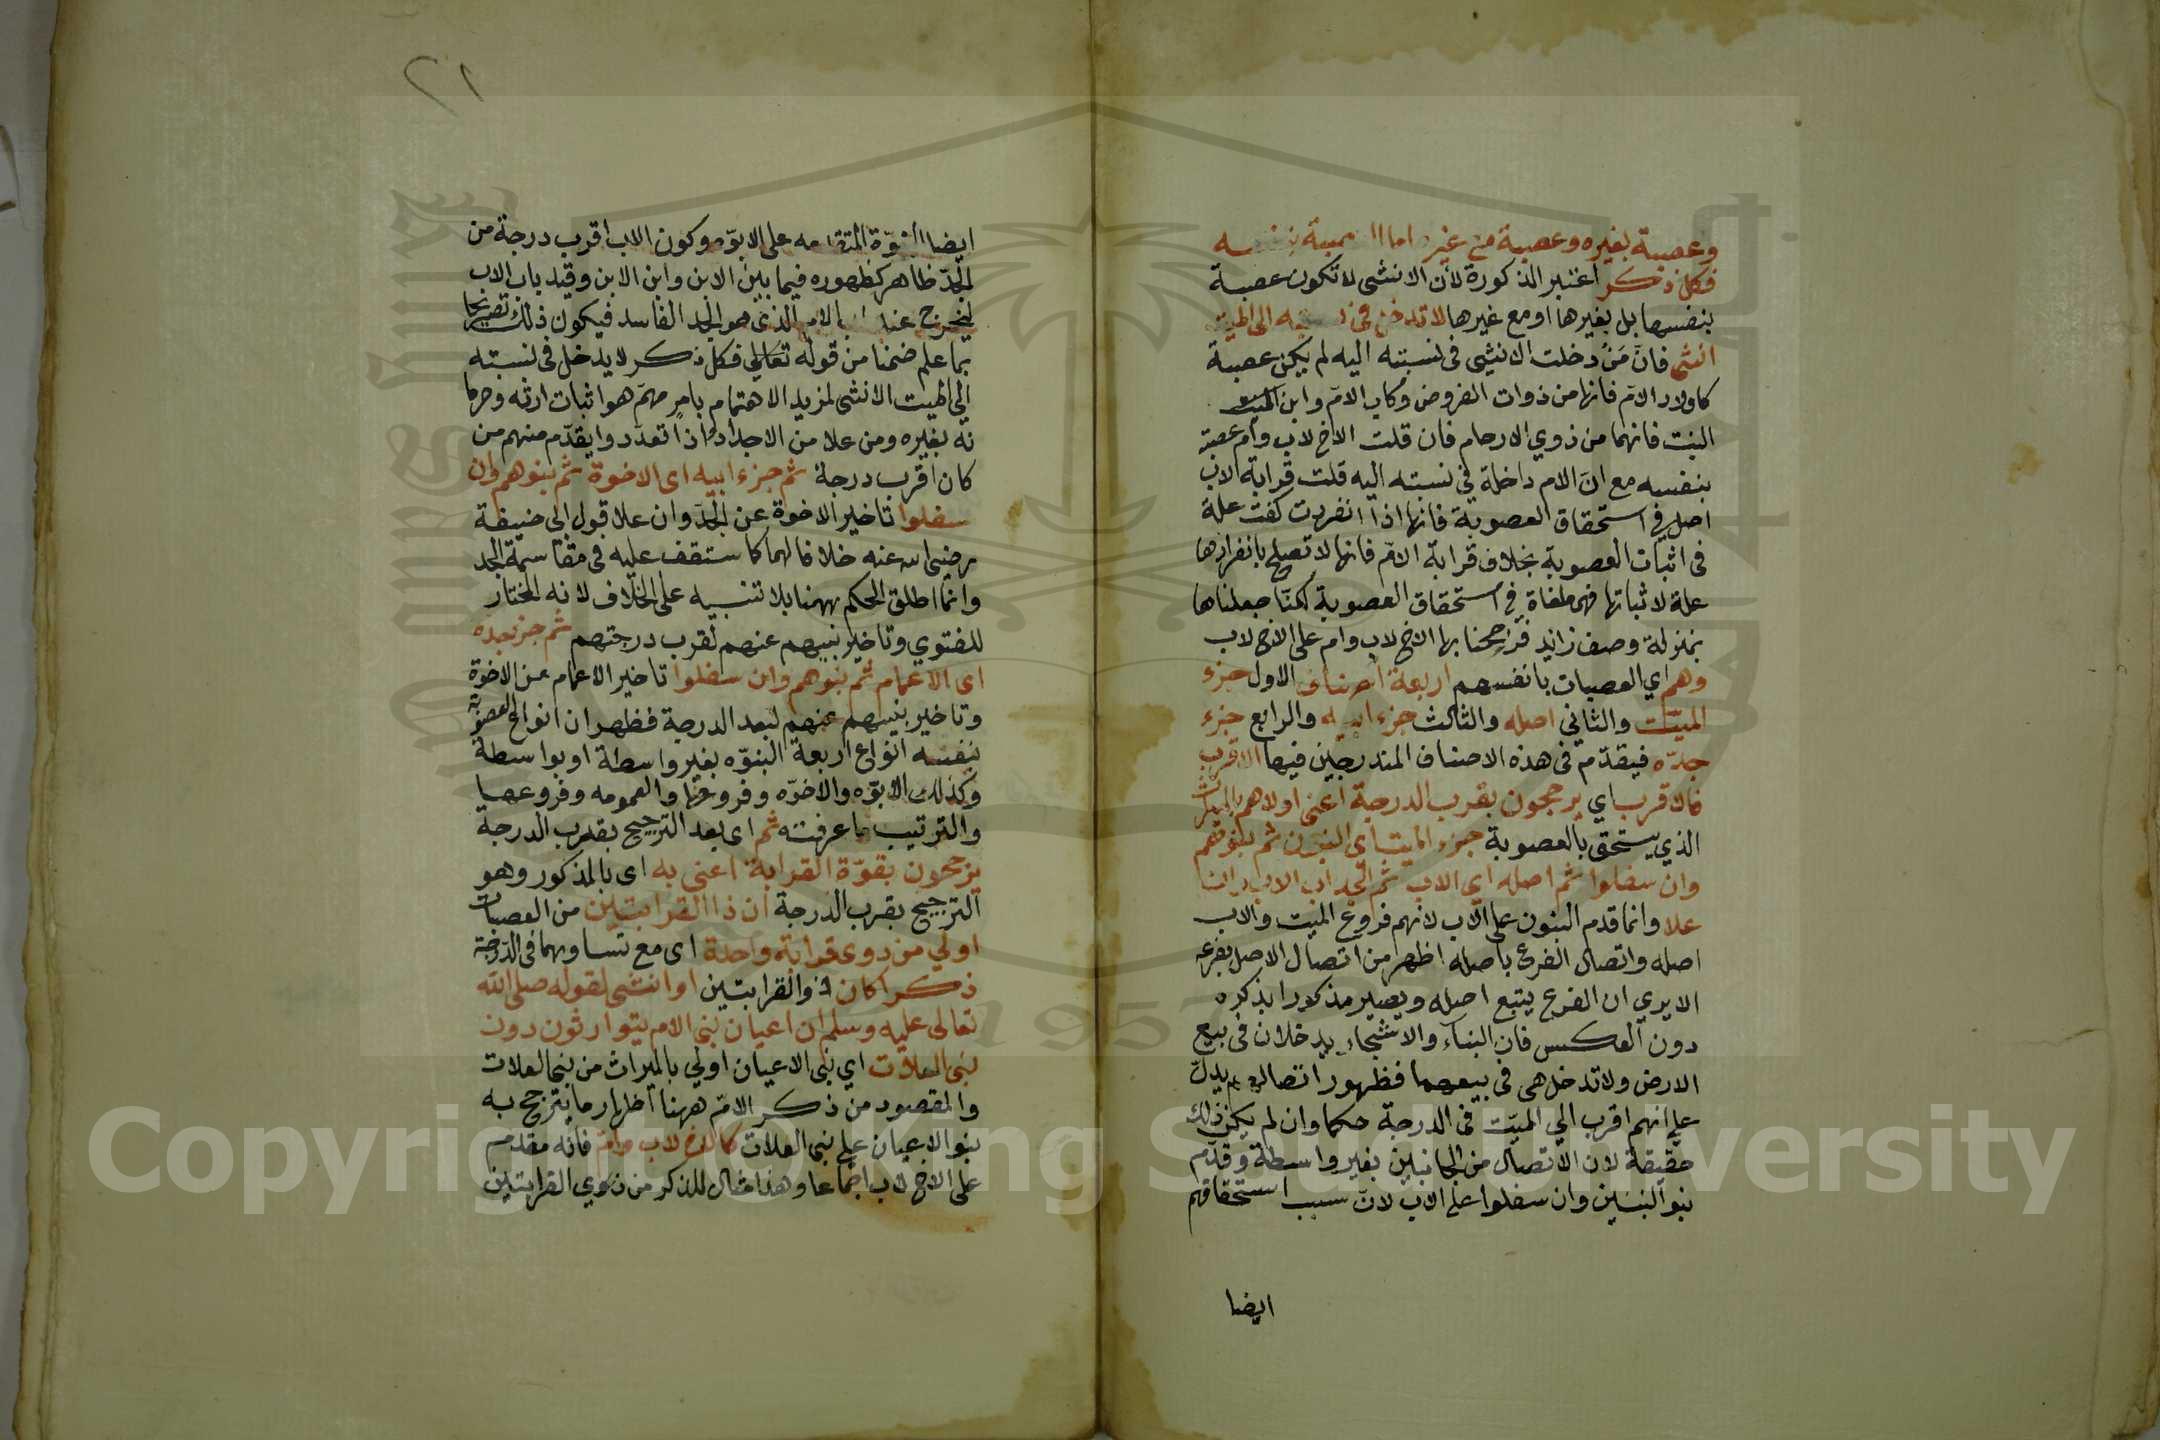 وعصبة بغيره وعصبة مع غيره اما
فكل ذكر اعتبر الذكورة لأن الانثى لا تكون عصبة
بنفسها بل بغيرها او مع غيرها لا تدخل فى الى الميت
انثى فانّ مَنْ دخلت الانثيى فى نسبته اليه لم يكن عصبة
كاولاد الامّ فانها من ذوات الفروض وكاب الامّ وابن
البنت فانهما من ذوي الارحام فان قلت الاخ لاب وام عصبة
بنفسه مع انّ الام داخلة في نسبته اليه قلت قرابة الاب
اصل في استحقاق العصوبة فانها اذا انفردت كفت علة
فى اثبات العصوبة بخلاف قرابة الامّ فانها لا تصلح بانفرادها
علة لاثباتها فهى ملغاة في استحقاق العصوبة لكنّا جعلناها
بمنزلة وصف زايد فرجحنا بها الاخ لاب وام على الاخ لاب
وهم اي العصبات بانفسهم اربعة اصناف الاول جزء
الميّت والثاني اصله والثالث جزء ابيه والرابع جزء
جدّه فيقدّم فى هذه الاصناف المندرجين فيها الاقرب
فالاقرب اي يرجحون بقرب الدرجة اعنى اولاهم بالميراث
الذي يستحق بالعصوبة جزء الميت اى البنون ثم بنوهم
وان سفلوا ثم اصله اي الاب ثم الجد اب الاب وان
علا وانما قدم البنون على الاب لانهم فروع الميت والاب
اصله واتصال الفرع باصله اظهر من اتصال الاصل بفرعه
الا يري ان الفرع يتبع اصله ويصير مذكورا بذكره
دون العكس فان البناء والاشجار يدخلان فى بيع
الارض ولا تدخل هى فى بيعهما فظهور اتصالهم يدلّ
على انهم اقرب الي الميّت فى الدرجة حكما وان لم يكن ذلك
حقيقة لان الاتصال من الجانبين بغير واسطة وقدّم
بنو البنين وان سفلوا على الاب لانّ سبب استحقاقهم
ايضا
٢١
ايضا البنوّة المتقدمه على الابوّه وكون الاب اقرب درجة من
الجدّ ظاهر كظهوره فيما بين الابن وابن الابن وقيد باب الاب
ليخرج عنه اب الام الذى هو الجد الفاسد فيكون ذلك تصريحا
بما علم ضمنا من قوله فكل ذكر لا يدخل فى نسبته
الى الميت الانثى لمزيد الاهتمام بامر مهمّ هو اثبات ارثه وحرما
نه بغيره ومن علا من الاجداد اذا تعدّدوا يقدّم منهم من
كان اقرب درجة ثم جزء ابيه اى الاخوة ثم بنوهم وان
سفلوا تاخير الاخوة عن الجدّ وان علا قول ابى حنيفة
رضى الله عنه خلافا لهما كما ستقف عليه فى مقاسمة الجد
وانما اطلق الحكم ههنا بلا تنبيه على الخلاف لانه المختار
للفتوي وتاخير بنيهم عنهم لقرب درجتهم ثم جزء جده
اى الاعمام ثم بنوهم وان سفلوا تاخير الاعمام عن الاخوة
وتاخير بنيهم عنهم لبعد الدرجة فظهر ان انواع العصوبة
بنفسه انواع اربعة البنوّه بغير واسطة او بواسطة
وكذلك الابوّه والاخوّه وفروعها والعمومه وفروعها
والترتيب ما عرفته ثم اى بعد الترجيح بقرب الدرجة
يرجحون بقوّة القرابة اعنى به اى بالمذكور وهو
الترجيح بقرب الدرجة ان ذا القرابتين من العصبات
اولي من ذوى قرابة واحدة اى مع تساويهما فى الدّرجة
ذكرا كان ذو القرابتين او انثى لقوله صلى الله
تعالى عليه وسلم ان اعيان بنى الام يتوارثون دون
بنى العلات اي بنى الاعيان اولي بالميراث من بنى العلات
والمقصود من ذكر الامّ ههنا اظهار ما يترجح به
بنو الاعيان على بنى العلات كالاخ لاب وام فانه مقدم
على الاخ لاب اجماعا وهذا مثال للذكر من ذوي القرابتين
Copyright © King Saud University
1957